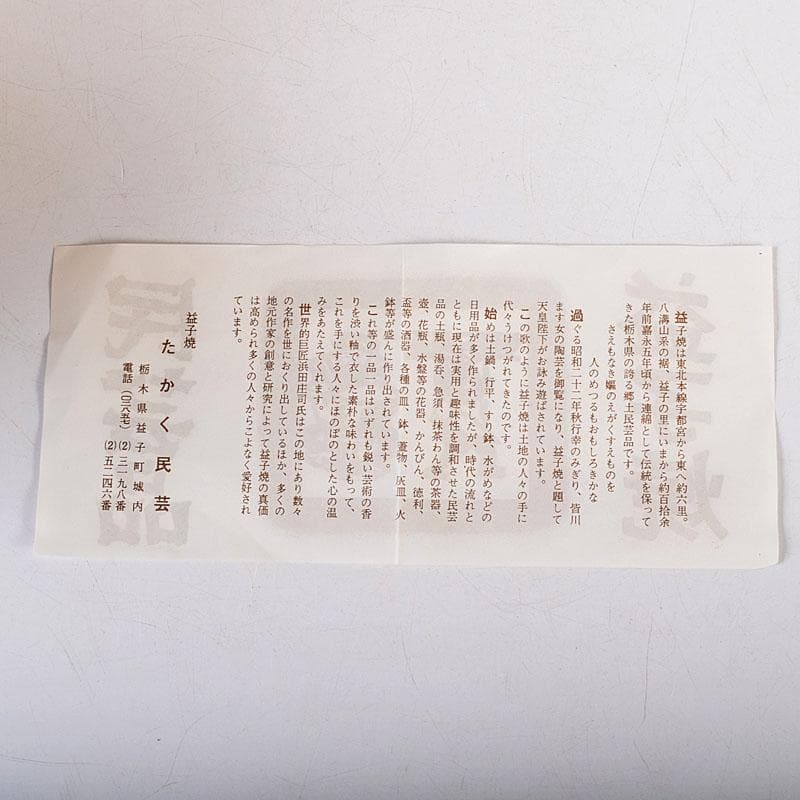 益子焼は東北本線宇都宮から東へ約六里。
八溝山系の裾、益子の里にいまから約百拾余
年前嘉永五年頃から連綿として伝統を保って
きた栃木県の誇る郷土民芸品です。
さえもなき嫗のえがくすえものを
人のめつるもおもしろきかな
過ぐる昭和二十二年秋行幸のみぎり、皆川
ます女の陶芸を御覧になり、益子焼と題して
天皇陛下がお詠み遊ばされています。
この歌のように益子焼は土地の人々の手に
代々うけつがれてきたのです。
始めは土鍋、行平、すり鉢、水がめなどの
日用品が多く作られましたが、時代の流れと
ともに現在は実用と趣味性を調和させた民芸
品の土瓶、湯呑、急須、抹茶わん等の茶器、
壺、花瓶、水盤等の花器、かんびん、徳利、
盃等の酒器、各種の皿、鉢、蓋物、灰皿、火
鉢等が盛んに作り出されています。
これ等の一品一品はいずれも鋭い芸術の香
りを渋い釉で衣した素朴な味わいをもって、
これを手にする人々にほのぼのとした心の温
みをあたえてくれます。
世界的巨匠浜田庄司氏はこの地にあり数々
の名作を世におくり出しているほか、多くの
地元作家の創意と研究によって益子焼の真価
は高められ多くの人々からこよなく愛好され
ています。
益子焼
たかく民芸
栃木県益子町城内
電話(〇二八五七)(2)三一九八番
(2)五二四六番
益子焼
民芸品